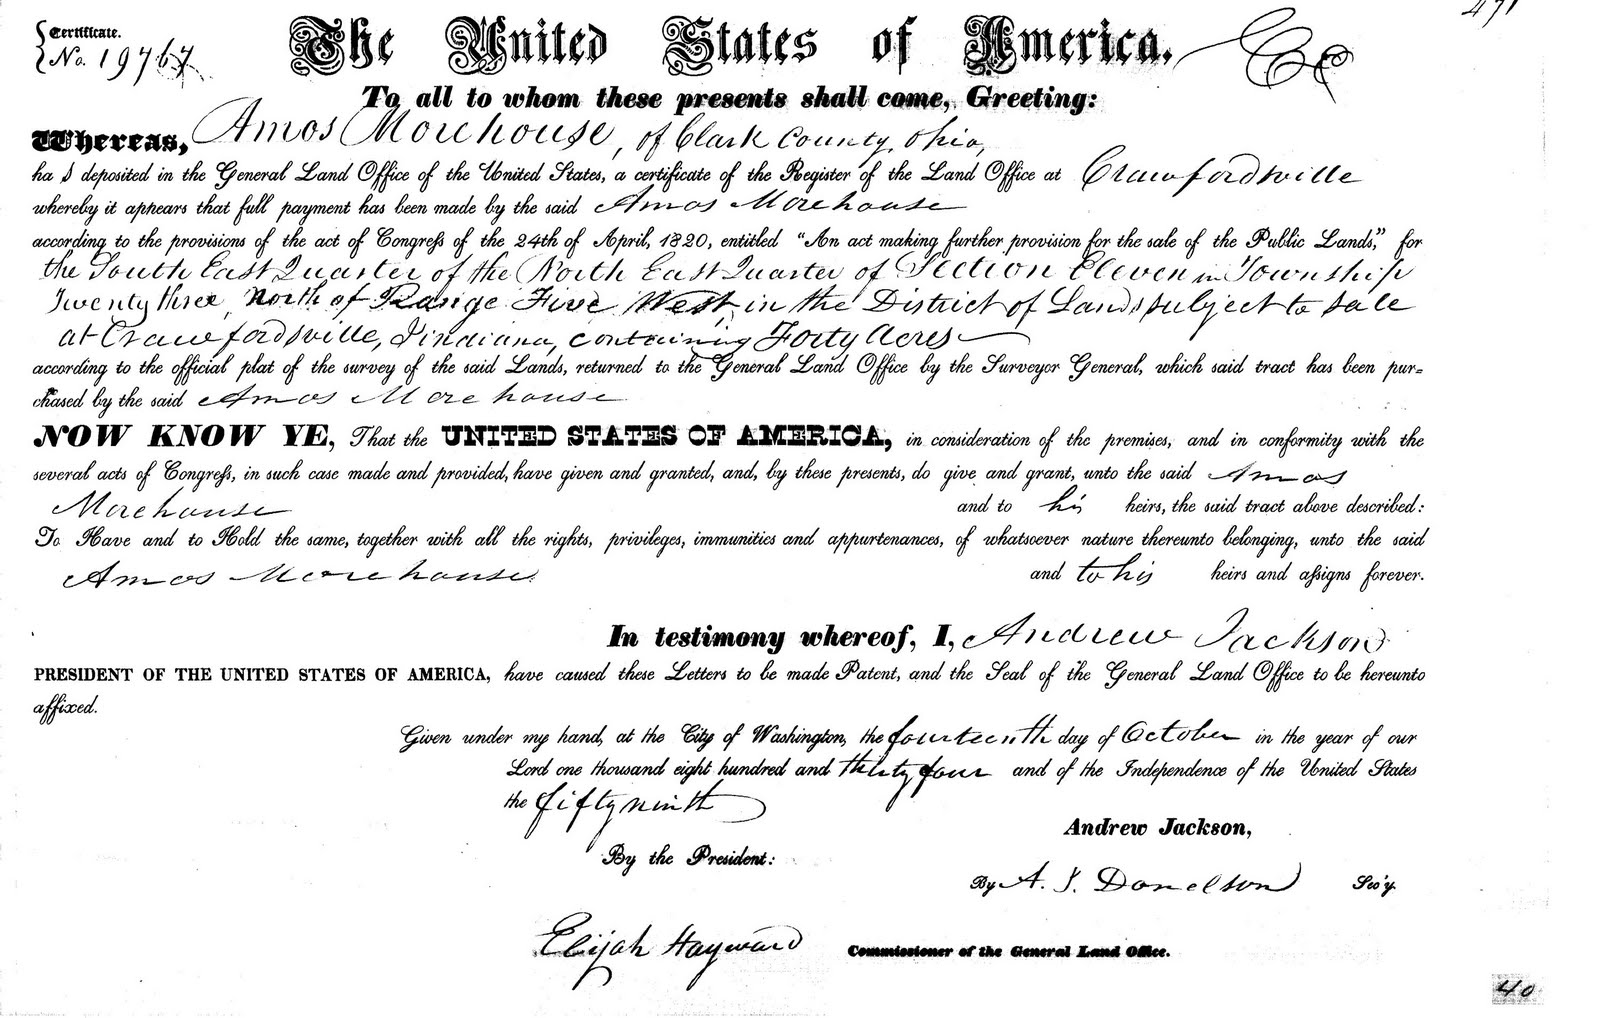 Certificate.
No. 19767
The United States of America.
To all to whom these presents shall come, Greeting:
Whereas, Amos Morehouse, of Clark County, Ohio,
ha s deposited in the General Land Office of the United States, a certificate of the Register of the Land Office at Crawfordsville
whereby it appears that full payment has been made by the said Amos Morehouse
according to the provisions of the act of Congress of the 24th of April, 1820, entitled "An act making further provision for the sale of the Public Lands," for
the South East Quarter of the North East Quarter of Section Eleven in Township
Twenty three, North of Range Five West, in the District of Lands subject to sale
at Crawfordsville, Indiana, containing Forty Acres
according to the official plat of the survey of the said Lands, returned to the General Land Office by the Surveyor General, which said tract has been pur=
chased by the said Amos Morehouse
NOW KNOW YE, That the UNITED STATES OF AMERICA, in consideration of the premises, and in conformity with the
several acts of Congress, in such case made and provided, have given and granted, and, by these presents, do give and grant, unto the said Amos
Morehouse and to his heirs, the said tract above described:
To Have and to Hold the same, together with all the rights, privileges, immunities and appurtenances, of whatsoever nature thereunto belonging, unto the said
Amos Morehouse and to his heirs and assigns forever.
In testimony whereof, I, Andrew Jackson
PRESIDENT OF THE UNITED STATES OF AMERICA, have caused these Letters to be made Patent, and the Seal of the General Land Office to be hereunto
affixed.
Given under my hand, at the City of Washington, the fourteenth day of October in the year of our
Lord one thousand eight hundred and thirty four and of the Independence of the United States
the fifty ninth
Andrew Jackson,
By the President:
By A. J. Donelson Sec'y.
Elijah Hayward Commissioner of the General Land Office.
40